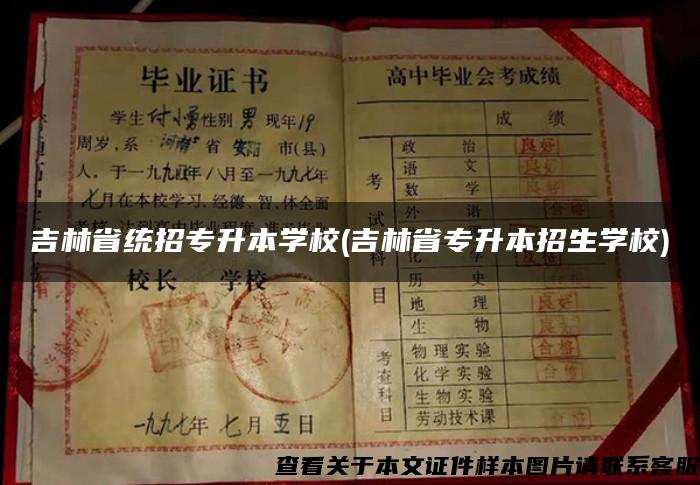 毕业证书
学生付小勇性别男现年19
周岁,系河南省安阳市(县)
人。于一九九四年八月至一九九七年
七月在本校学习、经德、智、体全面
吉林省统招专升本学校(吉林省专升本招生学校)
校长 学校
一九九七年七月五日
高中毕业会考成绩
成绩
考试科目
政治 良好
语文 良好
数学 良好
外语 合格
化学
历史
地理 良好
生物 良好
考查科目
物理实验 合格
化学实验 合格
生物实验
劳动技术课 合格
查看关于本文证件样本图片请联系客服